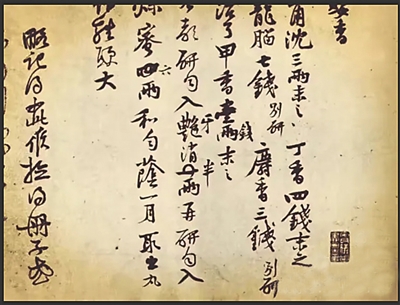 香
角沈三兩末之 丁香四錢末之
龍腦七錢別研 麝香三錢別研
治了甲香壹兩錢末之
右都研勻入艷消一兩再研勻入
牙 半
蜜四兩和勻蔭一月取出丸
六
作雞頭大
略記得如此候檢得冊子或